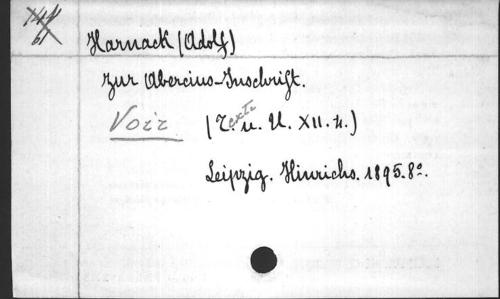 Harnack (Adolf)
Zur Abercius-Inschrift.
Voir (Texte u. U. XII. 4.)
Leipzig. Hinrichs. 1895. 8º.